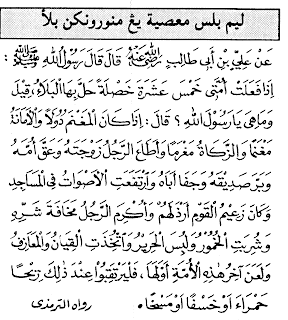 ليم بلس معصية يڠ منورونكن بلأ
عَنْ عَلِيِّ بْنِ أَبِي طَالِبٍ رضي الله عنه قَالَ قَالَ رَسُوْلُ اللهِ ﷺ :
إِذَا فَعَلَتْ أُمَّتِي خَمْسَ عَشَرَةَ خَصْلَةً حَلَّ بِهَا الْبَلَاءُ، قِيْلَ
وَمَا هِيَ يَا رَسُوْلَ اللهِ ؟ قَالَ: إِذَا كَانَ الْمَغْنَمُ دُوَلًا وَالْأَمَانَةُ
مَغْنَمًا وَالزَّكَاةُ مَغْرَمًا وَأَطَاعَ الرَّجُلُ زَوْجَتَهُ وَعَقَّ أُمَّهُ
وَبَرَّ صَدِيْقَهُ وَجَفَا أَبَاهُ وَارْتَفَعَتِ الْأَصْوَاتُ فِي الْمَسَاجِدِ
وَكَانَ زَعِيْمُ الْقَوْمِ أَرْذَلَهُمْ وَأُكْرِمَ الرَّجُلُ مَخَافَةَ شَرِّهِ
وَشُرِبَتِ الْخُمُوْرُ وَلُبِسَ الْحَرِيْرُ وَاتُّخِذَتِ الْقِيَانُ وَالْمَعَازِفُ
وَلَعَنَ آخِرُ هٰذِهِ الْأُمَّةِ أَوَّلَهَا، فَلْيَرْتَقِبُوْا عِنْدَ ذٰلِكَ رِيْحًا
حَمْرَاءَ أَوْ خَسْفًا أَوْ مَسْخًا، رواه الترمذى